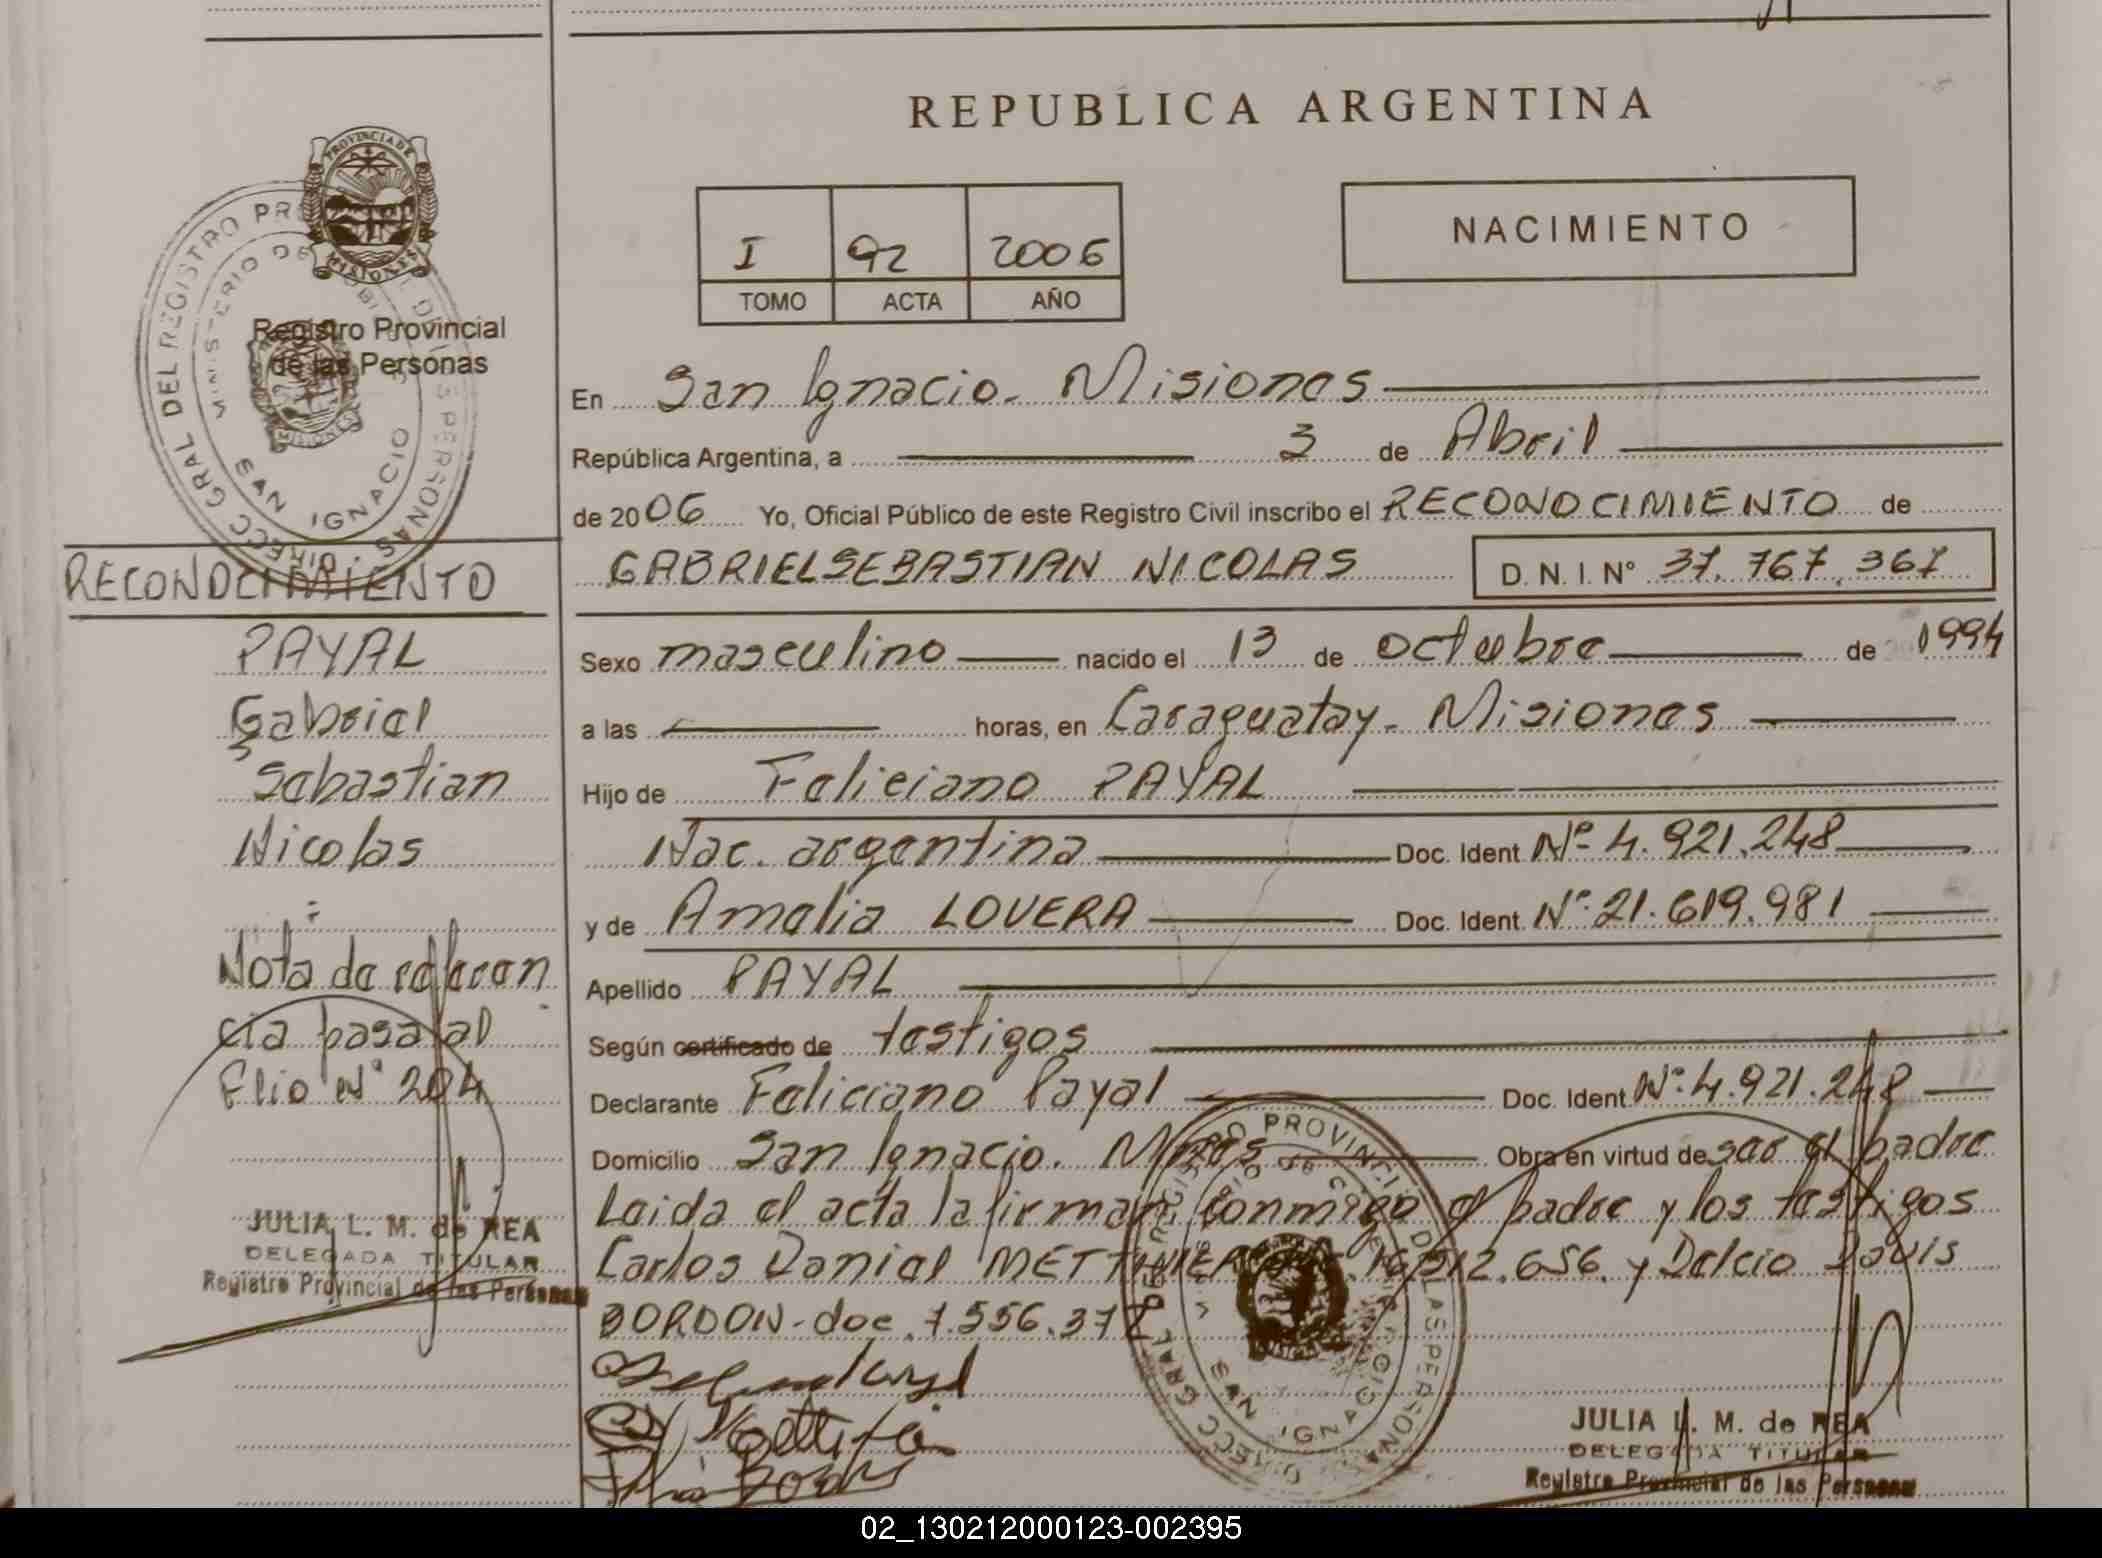 REPUBLICA ARGENTINA
PROVINCIA DE
MISIONES
Registro Provincial
de las Personas
DIRECC GRAL DEL REGISTRO
MINISTERIO DE
SAN IGNACIO
I 92 2006
TOMO ACTA AÑO
NACIMIENTO
En San Ignacio. Misiones
República Argentina, a 3 de Abril
de 2006 Yo, Oficial Público de este Registro Civil inscribo el RECONOCIMIENTO de
GABRIEL SEBASTIAN NICOLAS D. N. I. Nº 37.767.367
Sexo masculino nacido el 13 de octubre de 1994
a las horas, en Caraguatay. Misiones
Hijo de Feliciano PAYAL
Nac. argentina Doc. Ident. Nº 4.921.248
y de Amalia LOVERA Doc. Ident. Nº 21.619.981
Apellido PAYAL
Según certificado de testigos
Declarante Feliciano Payal Doc. Ident. Nº 4.921.248
Domicilio San Ignacio. Mnes Obra en virtud de ser el padre
Leida el acta la firman conmigo el padre y los testigos
Carlos Daniel 16.512.656. y Delcio
BORDON - doc. 7.556.377
RECONOCIMIENTO
PAYAL
Gabriel
Sebastian
Nicolas
Nota de referen
cia pasa al
Flio Nº 204
JULIA L. M. de REA
DELEGADA TITULAR
Registro Provincial de las Personas
DIRECC GRAL DEL REGISTRO PROVINCIAL DE LAS PERSONAS
SAN IGNACIO
JULIA L. M. de REA
DELEGADA TITULAR
Registro Provincial de las Personas
02_130212000123-002395